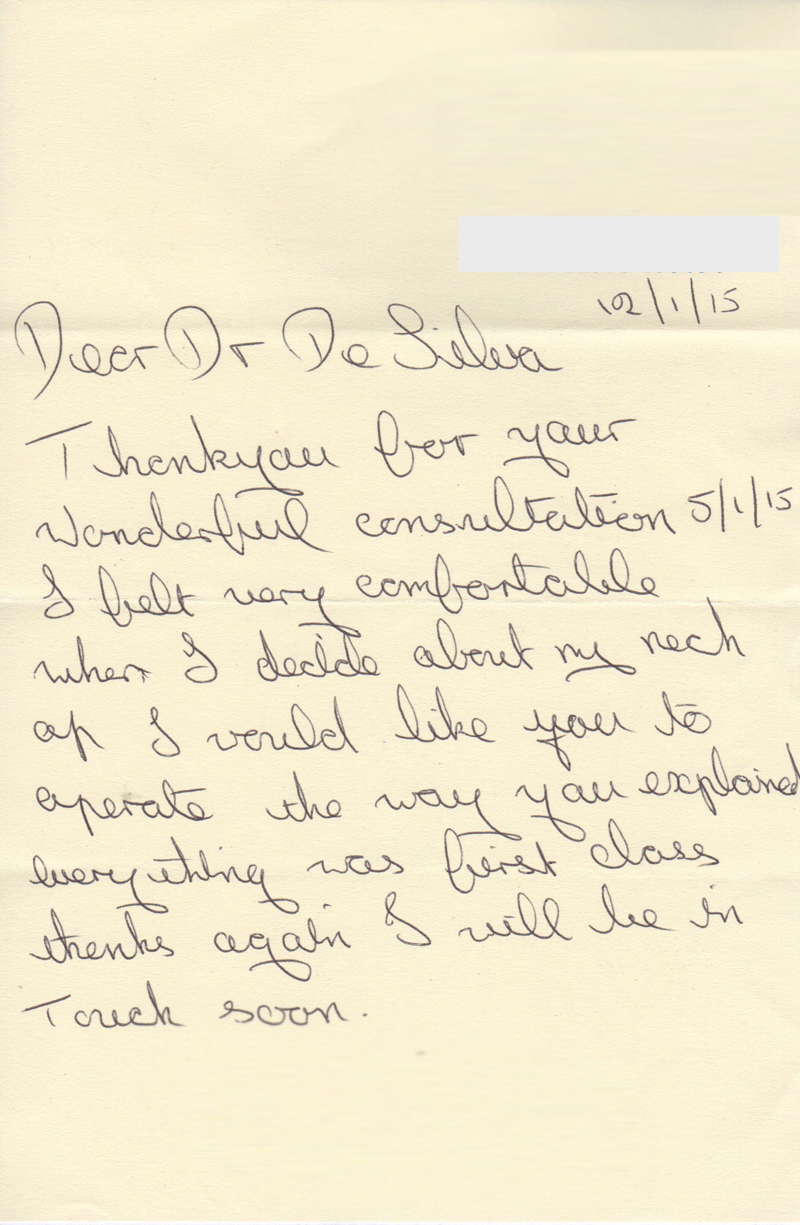 12/1/15
Dear Dr De Silva
Thankyou for your
wonderful consultation 5/1/15
I felt very comfortable
when I decide about my neck
op I would like you to
operate the way you explained
everything was first class
thanks again I will be in
Touch soon.